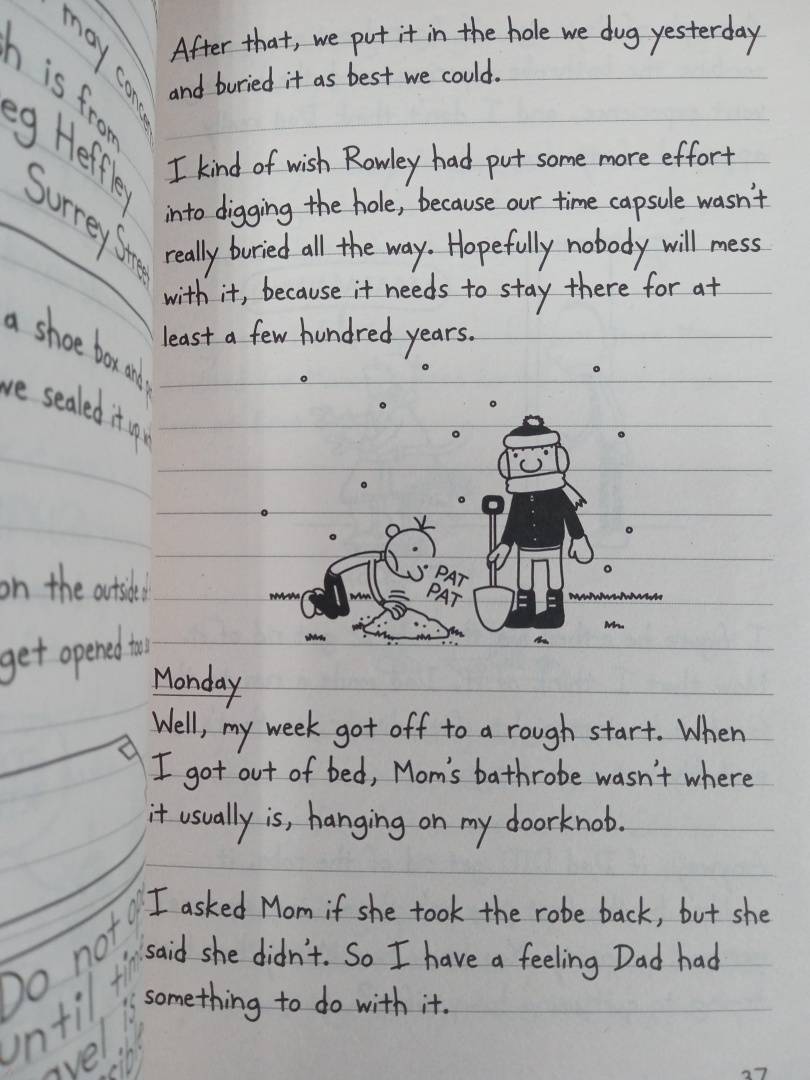 may
h is from
eg Heffley
Surrey Street
a shoe box and
we sealed it up
on the outside
get opened too
Do not
until
After that, we put it in the hole we dug yesterday
and buried it as best we could.
I kind of wish Rowley had put some more effort
into digging the hole, because our time capsule wasn't
really buried all the way. Hopefully nobody will mess
with it, because it needs to stay there for at
least a few hundred years.
PAT
PAT
Monday
Well, my week got off to a rough start. When
I got out of bed, Mom's bathrobe wasn't where
it usually is, hanging on my doorknob.
I asked Mom if she took the robe back, but she
said she didn't. So I have a feeling Dad had
something to do with it.
37